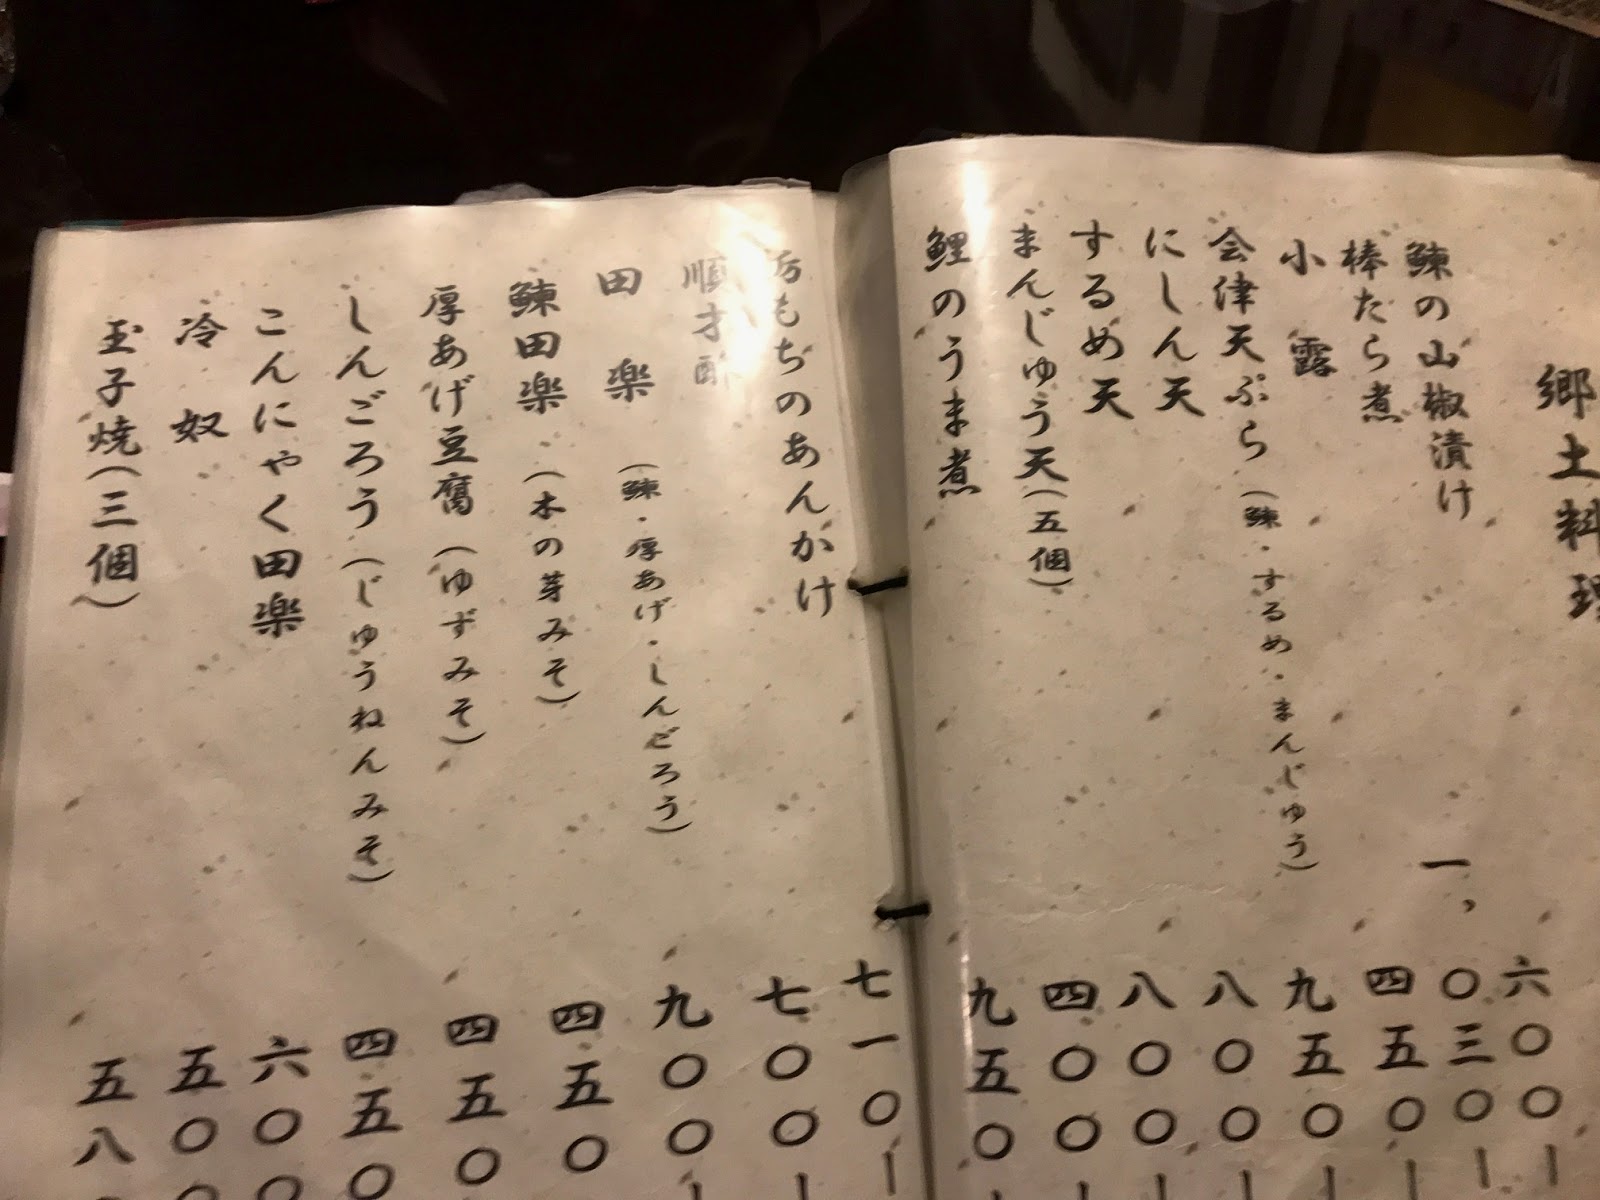 郷土料理
鰊の山椒漬け 六〇〇
棒たら煮 一、〇三〇
小露 四五〇
会津天ぷら（鰊・するめ・まんじゅう） 九五〇
にしん天 八〇〇
するめ天 八〇〇
まんじゅう天（五個） 四〇〇
鯉のうま煮 九五〇
栃もちのあんかけ 七一〇
順才酢 七〇〇
田楽（鰊・厚あげ・しんごろう） 九〇〇
鰊田楽（木の芽みそ） 四五〇
厚あげ豆腐（ゆずみそ） 四五〇
しんごろう（じゅうねんみそ） 四五〇
こんにゃく田楽 六〇〇
冷奴 五〇
玉子焼（三個） 五八